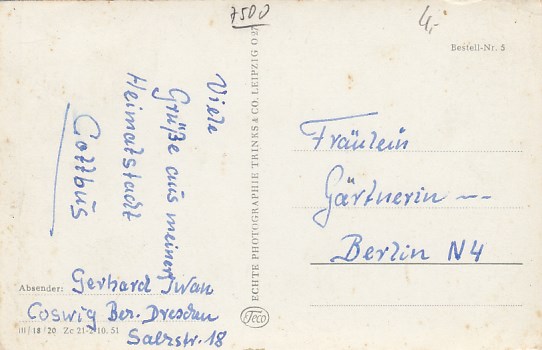 7500
4,-
Bestell-Nr. 5
Viele
Grüße aus meiner
Heimatstadt
Cottbus
ECHTE PHOTOGRAPHIE TRINKS & CO. LEIPZIG O 27
Teco
Fräulein
Gärtnerin
Berlin N4
Absender: Gerhard Iwan
Coswig Bez. Dresden
III/18/20 Zc 21-2 10. 51
Salzstr. 18